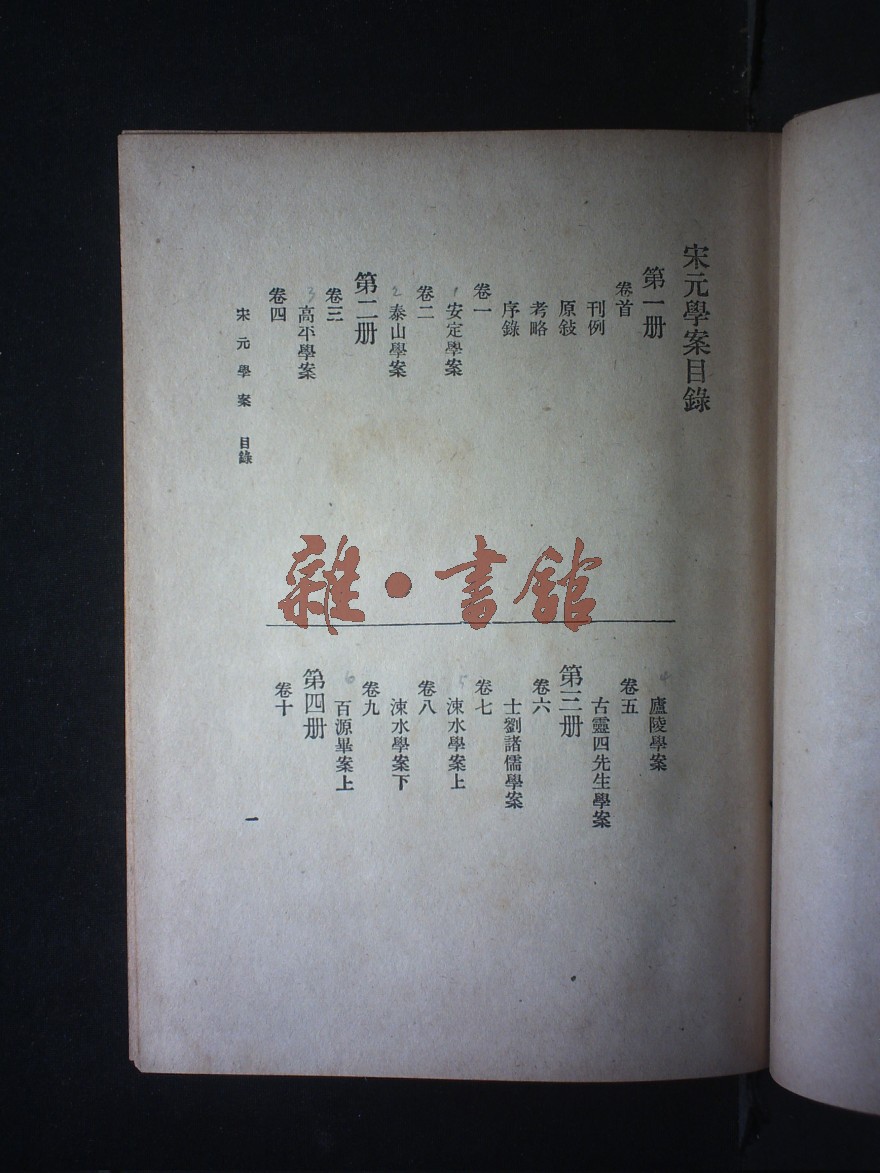 宋元學案目錄
第一册
卷首
刊例
原敍
考略
序錄
卷一
1 安定學案
卷二
2 泰山學案
第二册
卷三
3 高平學案
卷四
4 廬陵學案
卷五
古靈四先生學案
第三册
卷六
士劉諸儒學案
卷七
5 涑水學案上
卷八
涑水學案下
卷九
6 百源畢案上
第四册
卷十
宋元學案 目錄
一
雜·書館